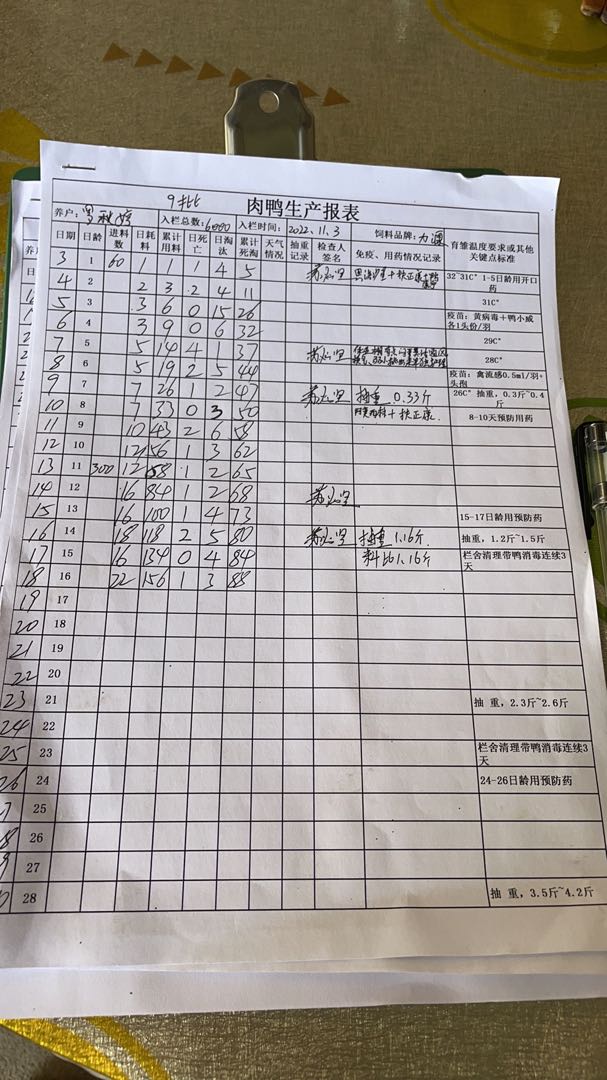 9批 肉鸭生产报表
养户: 入栏总数:6000 入栏时间: 2022.11.3 饲料品牌: 力源 育雏温度要求或其他关键点标准
日期 日龄 进料数 日耗料 累计用料 日死亡 日淘汰 累计死淘 天气情况 抽重记录 检查人签名 免疫、用药情况记录
3 1 60 1 1 1 4 5 32~31C° 1-5日龄用开口药
4 2 2 3 2 4 11 31C°
5 3 3 6 0 15 26 疫苗:黄病毒+鸭小减各1头份/羽
6 4 3 9 0 6 32 29C°
7 5 5 14 4 1 37 28C°
8 6 5 19 2 5 44 疫苗:禽流感0.5ml/羽+头孢
9 7 7 26 2 47 抽重 0.33斤 26C° 抽重,0.3斤~0.4斤
10 8 7 33 0 3 50 +扶正康 8-10天预防用药
11 9 10 43 2 6 58
12 10 12 56 1 3 62
13 11 300 12 68 1 2 65
14 12 16 84 1 2 68
15 13 16 100 1 4 73 15-17日龄用预防药
16 14 18 118 2 5 80 抽重 1.16斤 抽重,1.2斤~1.5斤
17 15 16 134 0 4 84 料比1.16斤 栏舍清理带鸭消毒连续3天
18 16 22 156 1 3 88
19 17
20 18
21 19
22 20
23 21 抽 重,2.3斤~2.6斤
24 22
25 23 栏舍清理带鸭消毒连续3天
26 24 24-26日龄用预防药
7 25
8 26
9 27
0 28 抽 重,3.5斤~4.2斤